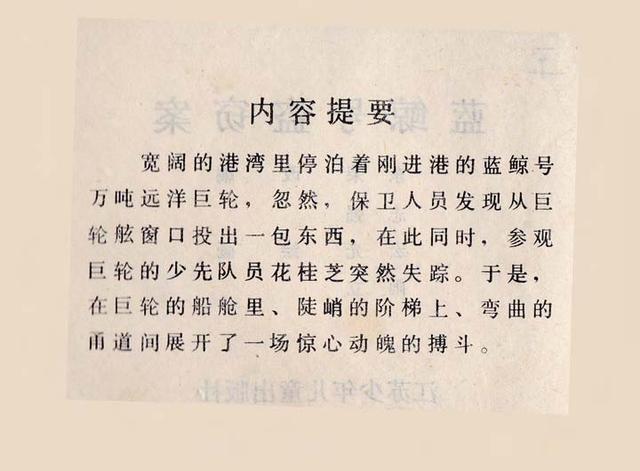 内容提要
宽阔的港湾里停泊着刚进港的蓝鲸号
万吨远洋巨轮，忽然，保卫人员发现从巨
轮舷窗口投出一包东西，在此同时，参观
巨轮的少先队员花桂芝突然失踪。于是，
在巨轮的船舱里、陡峭的阶梯上、弯曲的
甬道间展开了一场惊心动魄的搏斗。
江苏少年儿童出版社